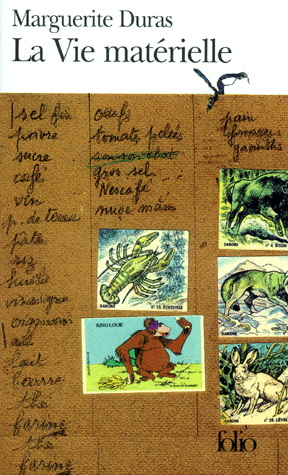 Marguerite Duras
La Vie matérielle
sel fin
poivre
sucre
café
vin
p. de terre
pâtes
riz
huile
vinaigre
oignons
ail
lait
beurre
thé
farine
thé
farine
oeufs
tomates pelées
gros sel
Nescafé
nuoc mâm
pain
fromages
yaourths
DANONE
n° 15. ÉCREVISSE
KING LOUIE
DANONE
DANONE
DANONE
folio